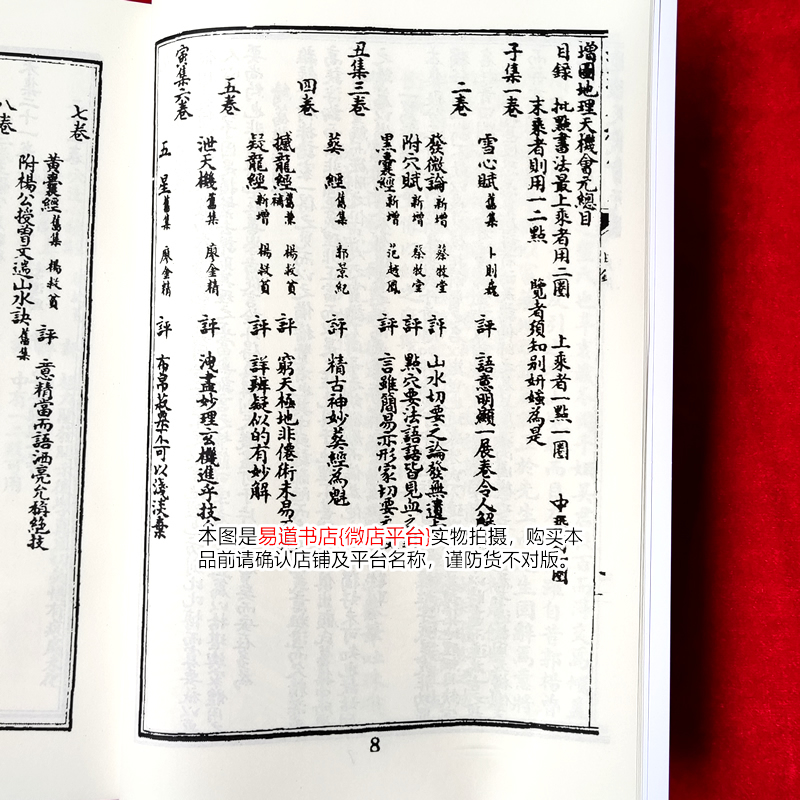 增圖地理天機會元總目
目錄 批點書法最上乘者用二圈 上乘者一點一圈 中
末乘者則用一二點 覽者須知别妍媸為是
子集一卷
雪心賦 舊集 卜則巍 評 語意明顯一展卷令人解
二卷
發微論 新增 蔡牧堂 評 山水切要之論發無遺
附穴賦 新增 蔡牧堂 評 點穴要法語語皆見血之
黑囊經 新增 范越鳳 評 言雖簡易亦形家切要之
丑集三卷
葬經 舊集 郭景純 評 精古神妙葬經為魁
四卷
撼龍經 舊集 楊救貧 評 窮天極地非僊術未易
疑龍經 新增 楊救貧 評 詳辨疑似的有妙解
五卷
泄天機 舊集 廖金精 評 洩盡妙理玄機進乎技
寅集六卷
五星 舊集 廖金精 評 布帛菽粟不可以淺淡棄
七卷
黄囊經 舊集 楊救貧 評 意精當而語洒亮允稱絶技
附楊公授曾文遄山水訣 舊集
八卷
本图是易道书店{微店平台}实物拍摄，购买本
品前请确认店铺及平台名称，谨防货不对版。
8